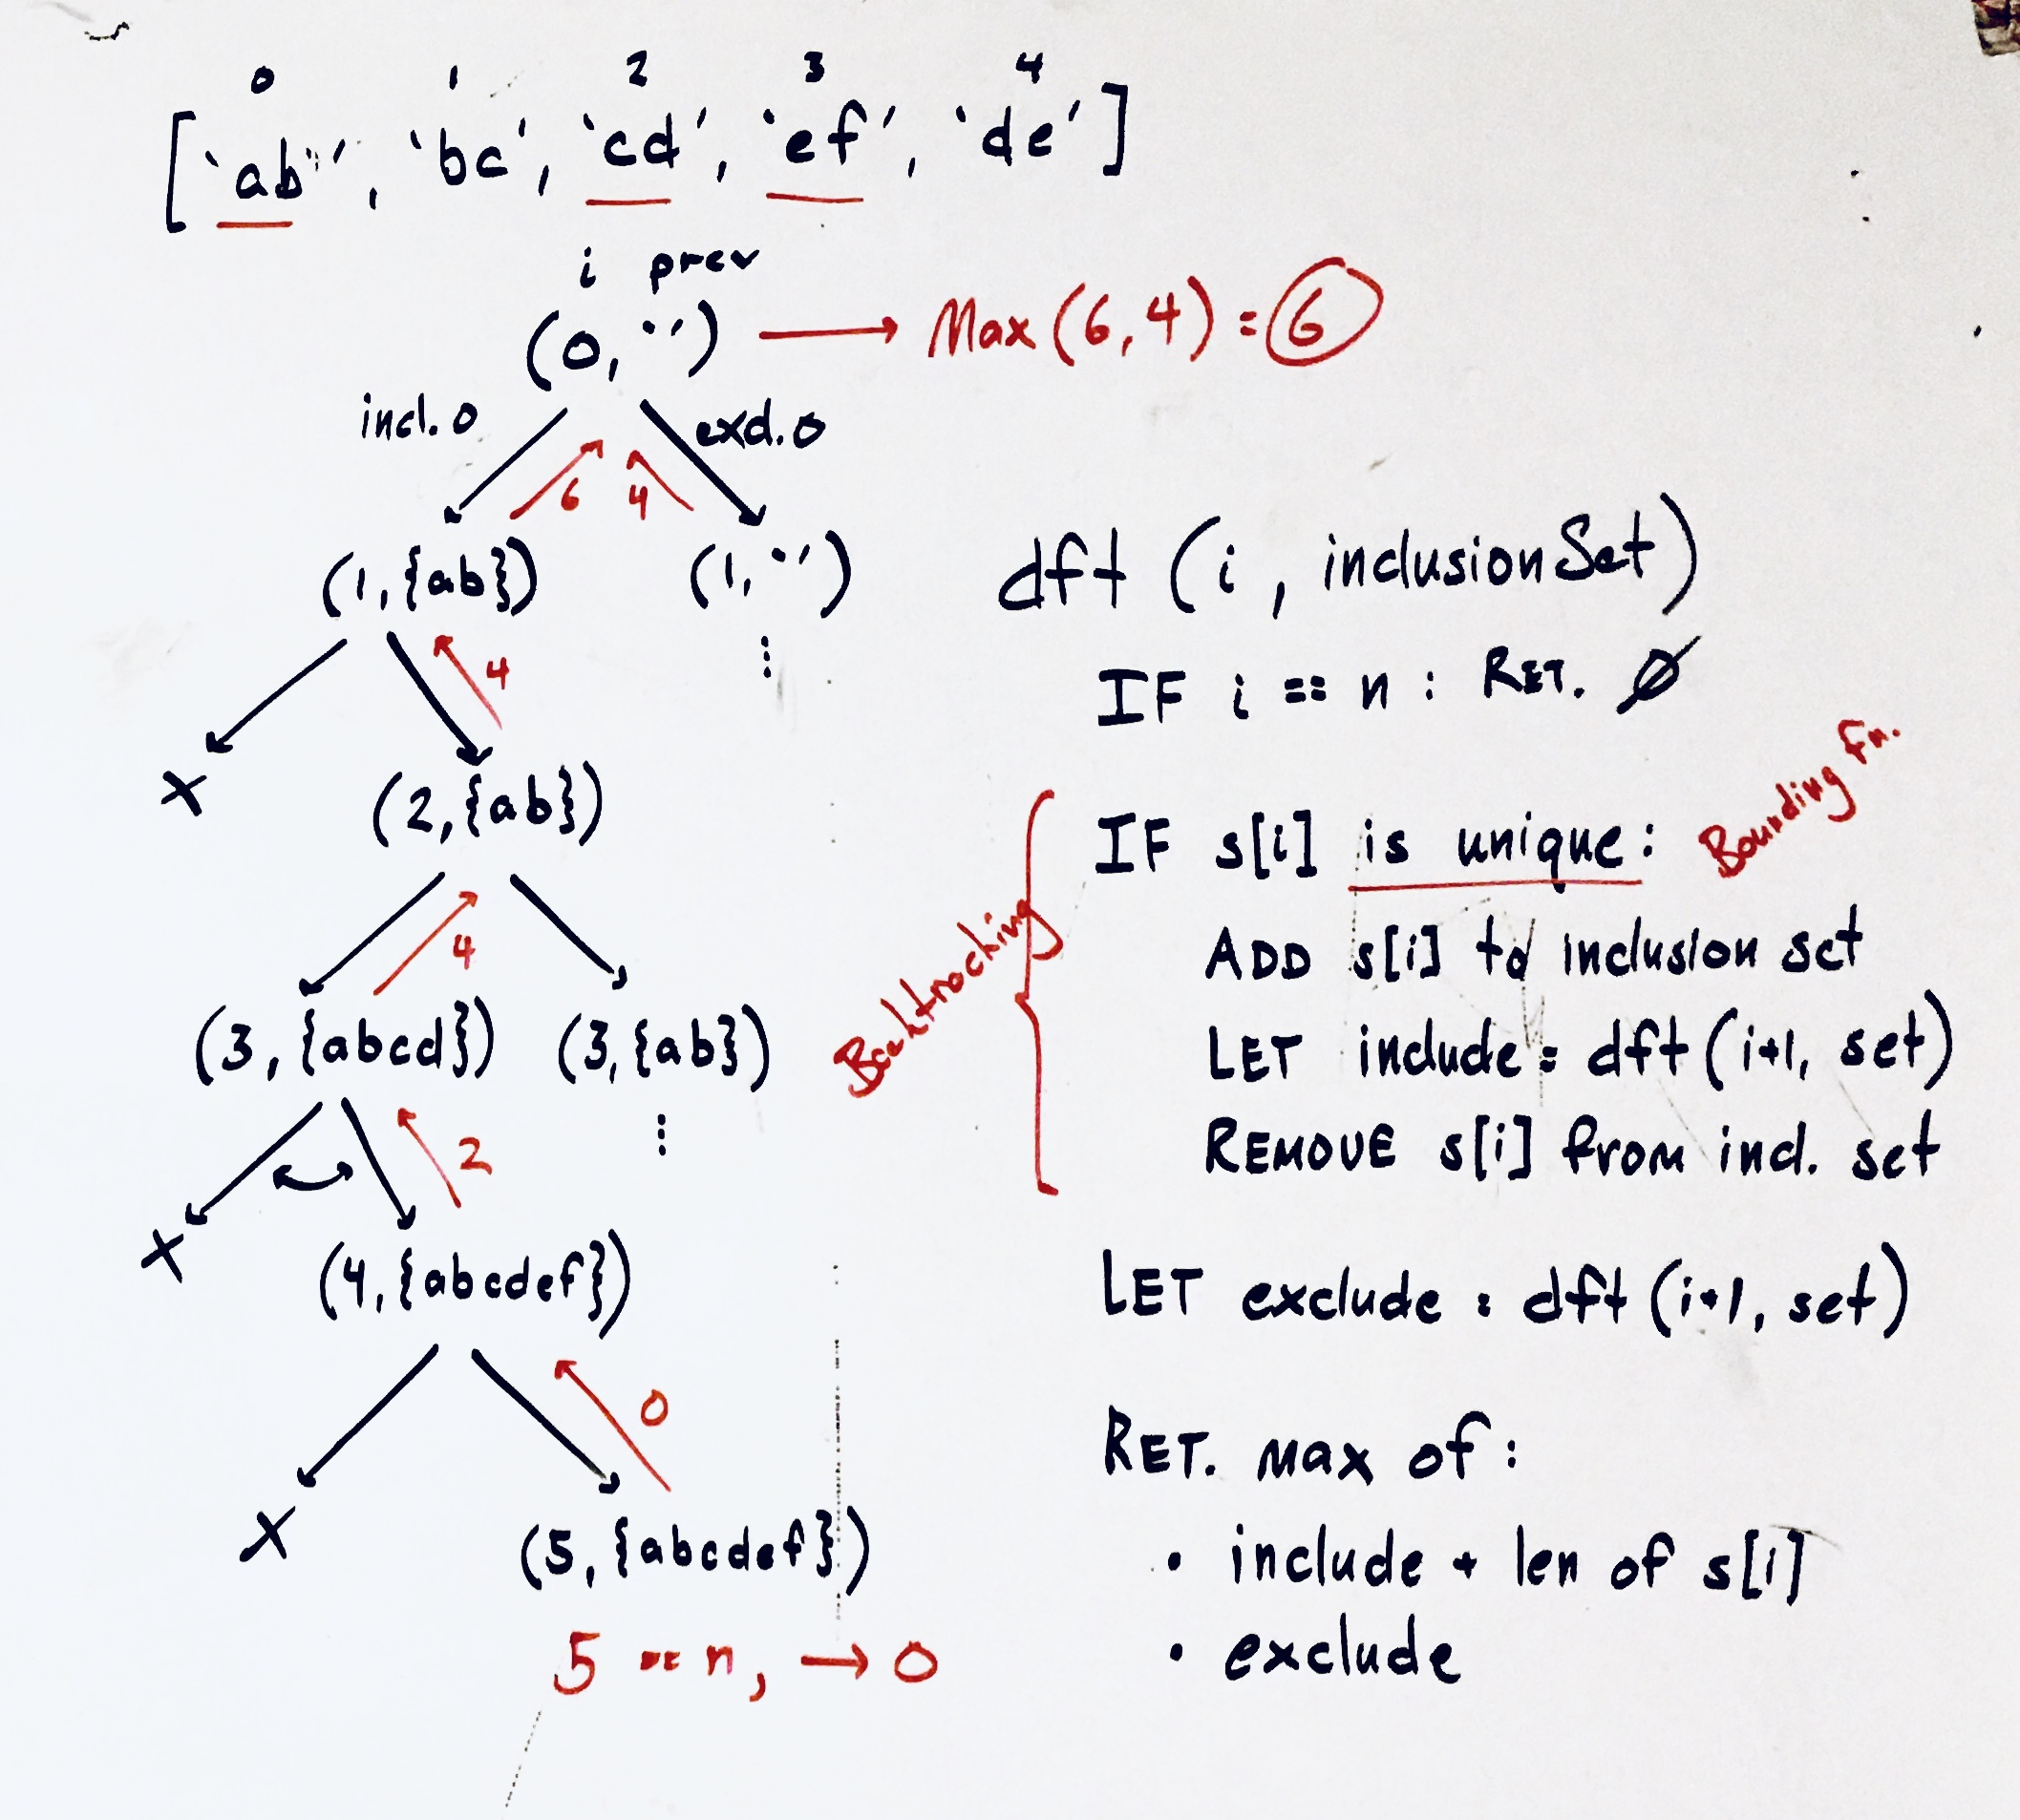 0 1 2 3 4
[‘ab’’, ‘bc’, ‘cd’, ‘ef’, ‘de’]
i prev
(0, ‘’) → Max(6,4) = 6
incl. 0 excl. 0
6 4
(1,{ab}) (1, ‘’)
⋮
4
X (2,{ab})
4
(3,{abcd}) (3,{ab})
⋮
2
X (4,{abcdef})
0
X (5,{abcdef})
5 == n, → 0
dft (i, inclusionSet)
IF i == n : RET. 0
Bounding Fn.
IF s[i] is unique:
Backtracking
ADD s[i] to inclusion set
LET include = dft(i+1, set)
REMOVE s[i] from incl. set
LET exclude = dft(i+1, set)
RET. max of:
• include + len of s[i]
• exclude